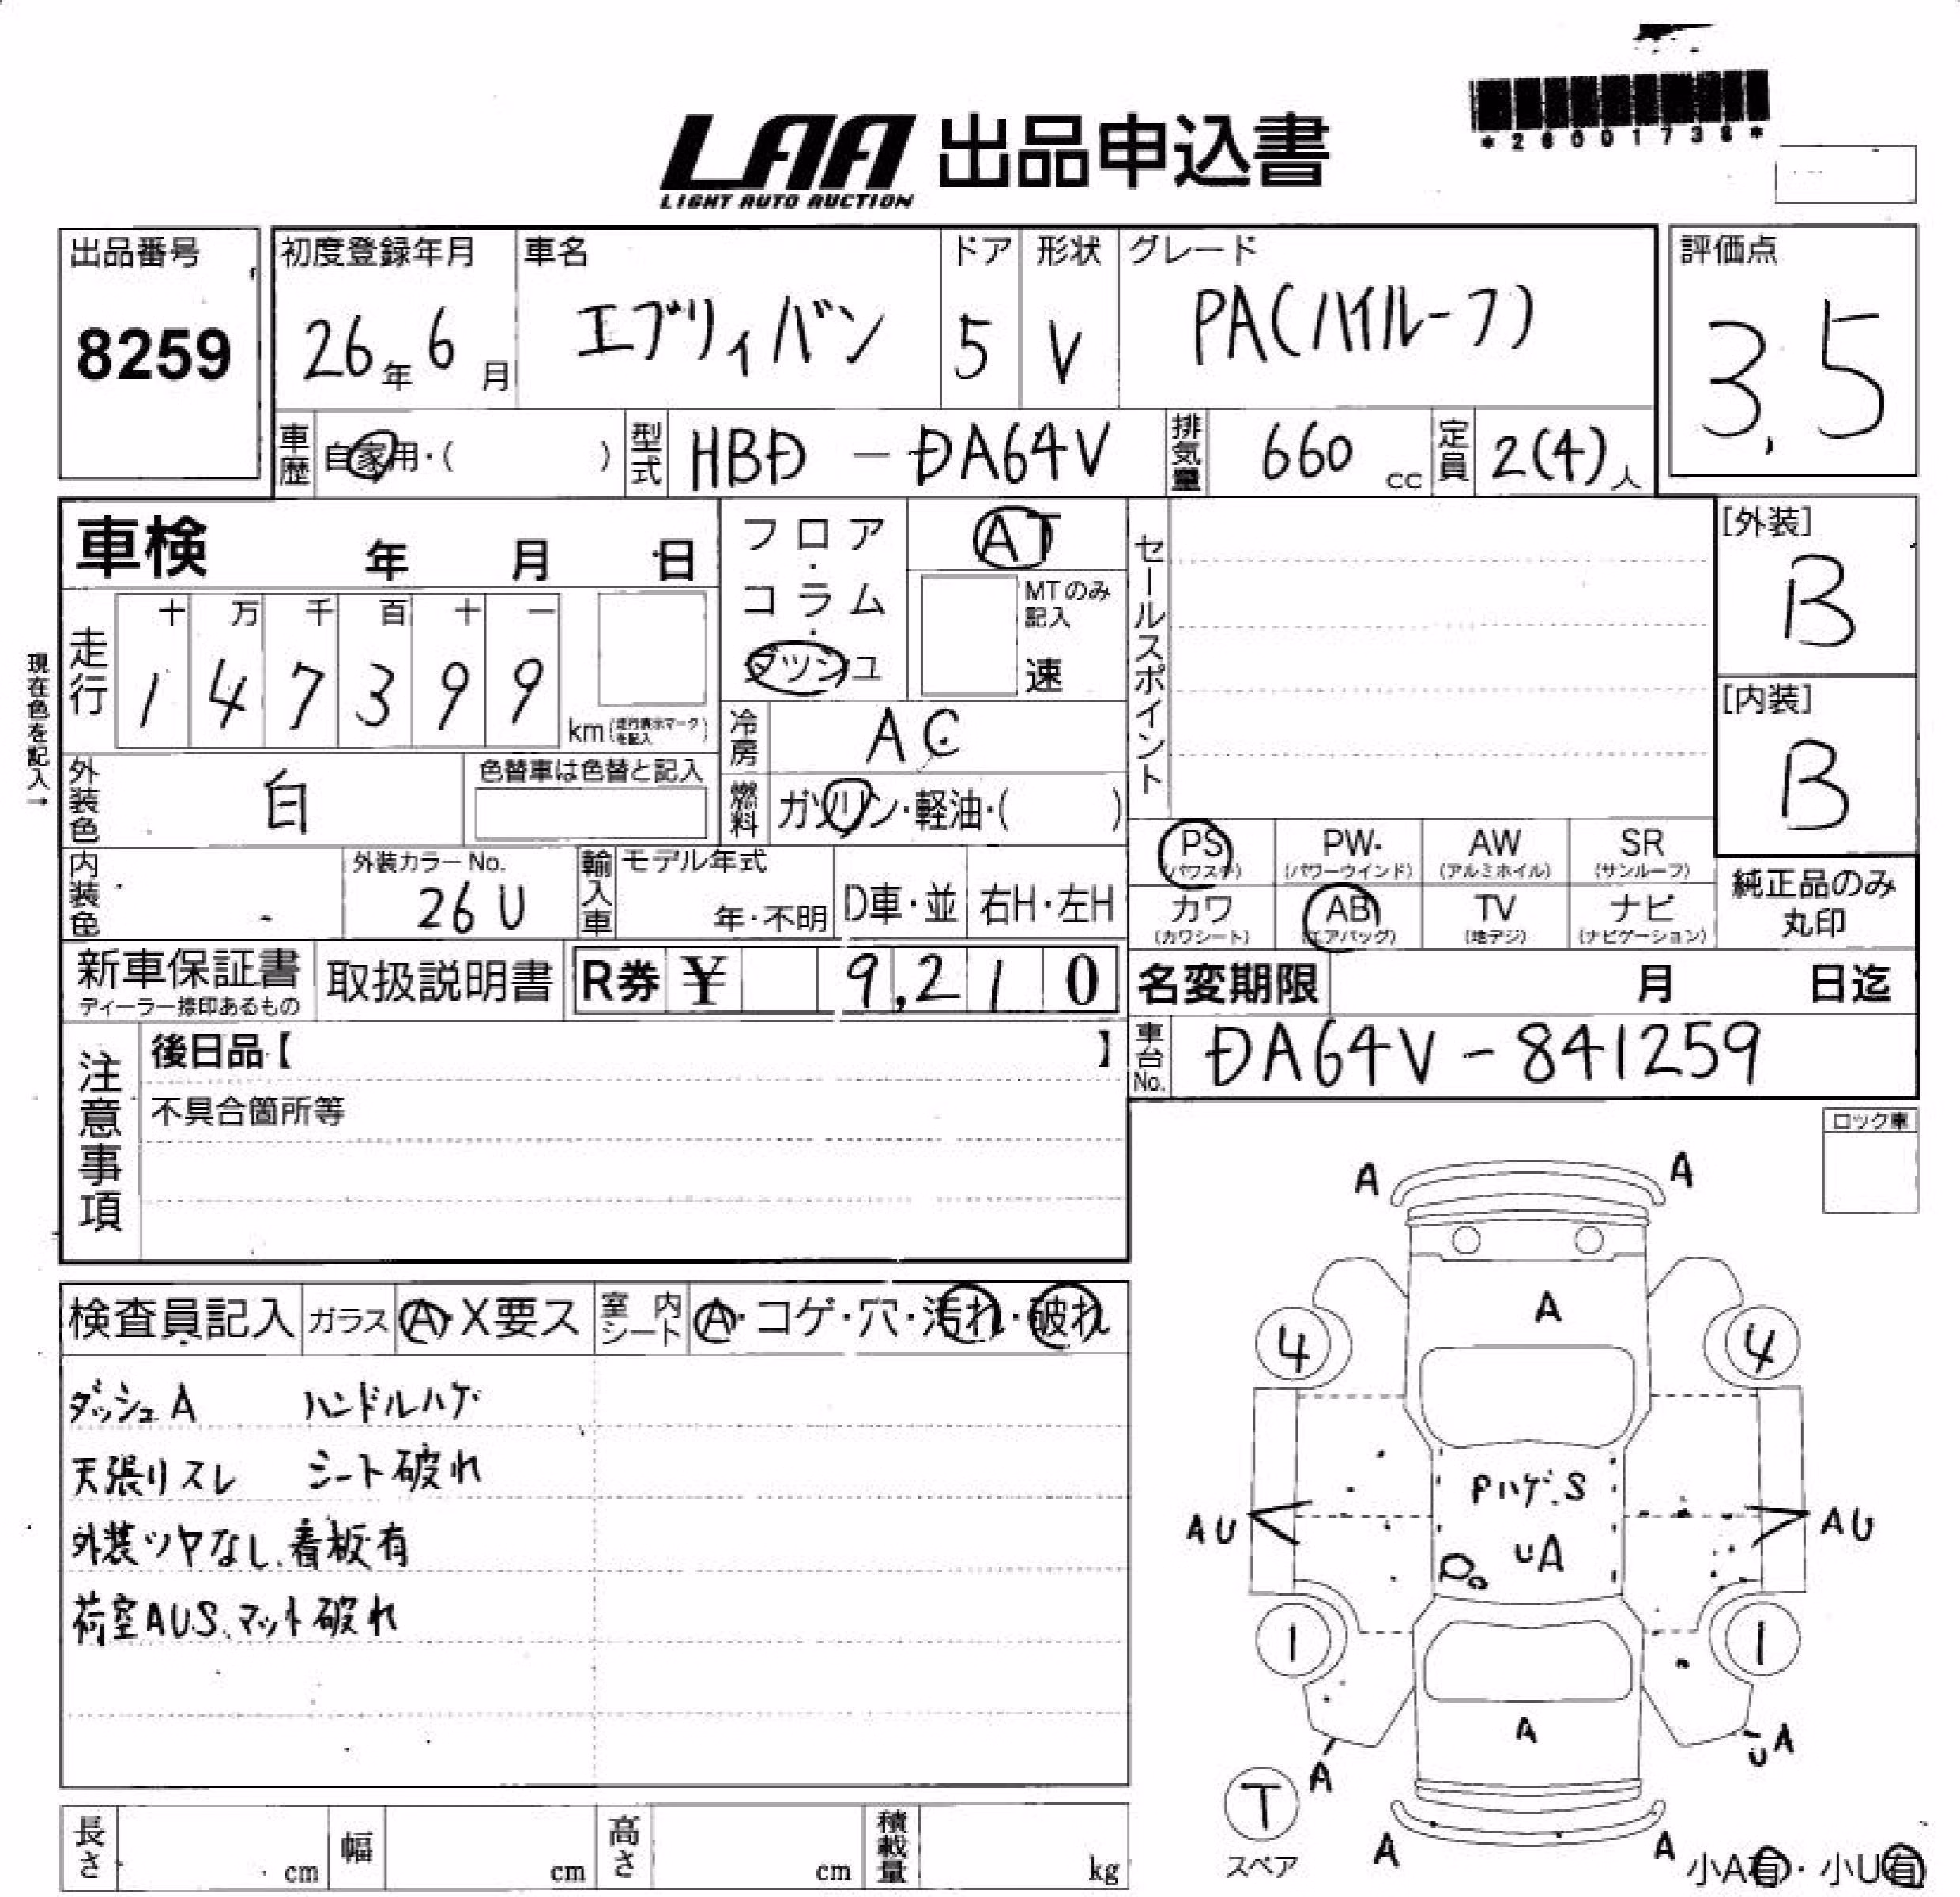 LAA 出品申込書
LIGHT AUTO AUCTION
*26001738*
出品番号
8259
初度登録年月
26年6月
車名
エブリィバン
ドア
5
形状
V
グレード
PA(ハイルーフ)
評価点
3.5
車歴
自家用・( )
型式
HBD - DA64V
排気量
660 cc
定員
2(4)人
車検 年 月 日
フロア・コラム・ダッシュ
AT
MTのみ記入
速
セールスポイント
[外装]
B
[内装]
B
現在色を記入→
走行
十 万 千 百 十 一
1 4 7 3 9 9
km(走行表示マークを記入)
冷房
AC
外装色
白
色替車は色替と記入
燃料
ガソリン・軽油・( )
内装色
外装カラーNo.
26U
輸入車
モデル年式
年・不明
D車・並
右H・左H
PS
(パワステ)
PW
(パワーウインド)
AW
(アルミホイル)
SR
(サンルーフ)
カワ
(カワシート)
AB
(エアバッグ)
TV
(地デジ)
ナビ
(ナビゲーション)
純正品のみ
丸印
新車保証書
ディーラー捺印あるもの
取扱説明書
R券 ¥ 9,210
名変期限 月 日迄
車台No.
DA64V-841259
注意事項
後日品【 】
不具合箇所等
ロック車
検査員記入
ガラス
A・X要ス
室内シート
A・コゲ・穴・汚れ・破れ
ダッシュA ハンドルハゲ
天張りスレ シート破れ
外装ツヤなし、看板有
荷室AUS、マット破れ
A A
A
4 4
Pハゲ.S
AU AU
UA
1 1
A
UA
A
T
スペア
A A
小A有・小U有
長さ cm
幅 cm
高さ cm
積載量 kg